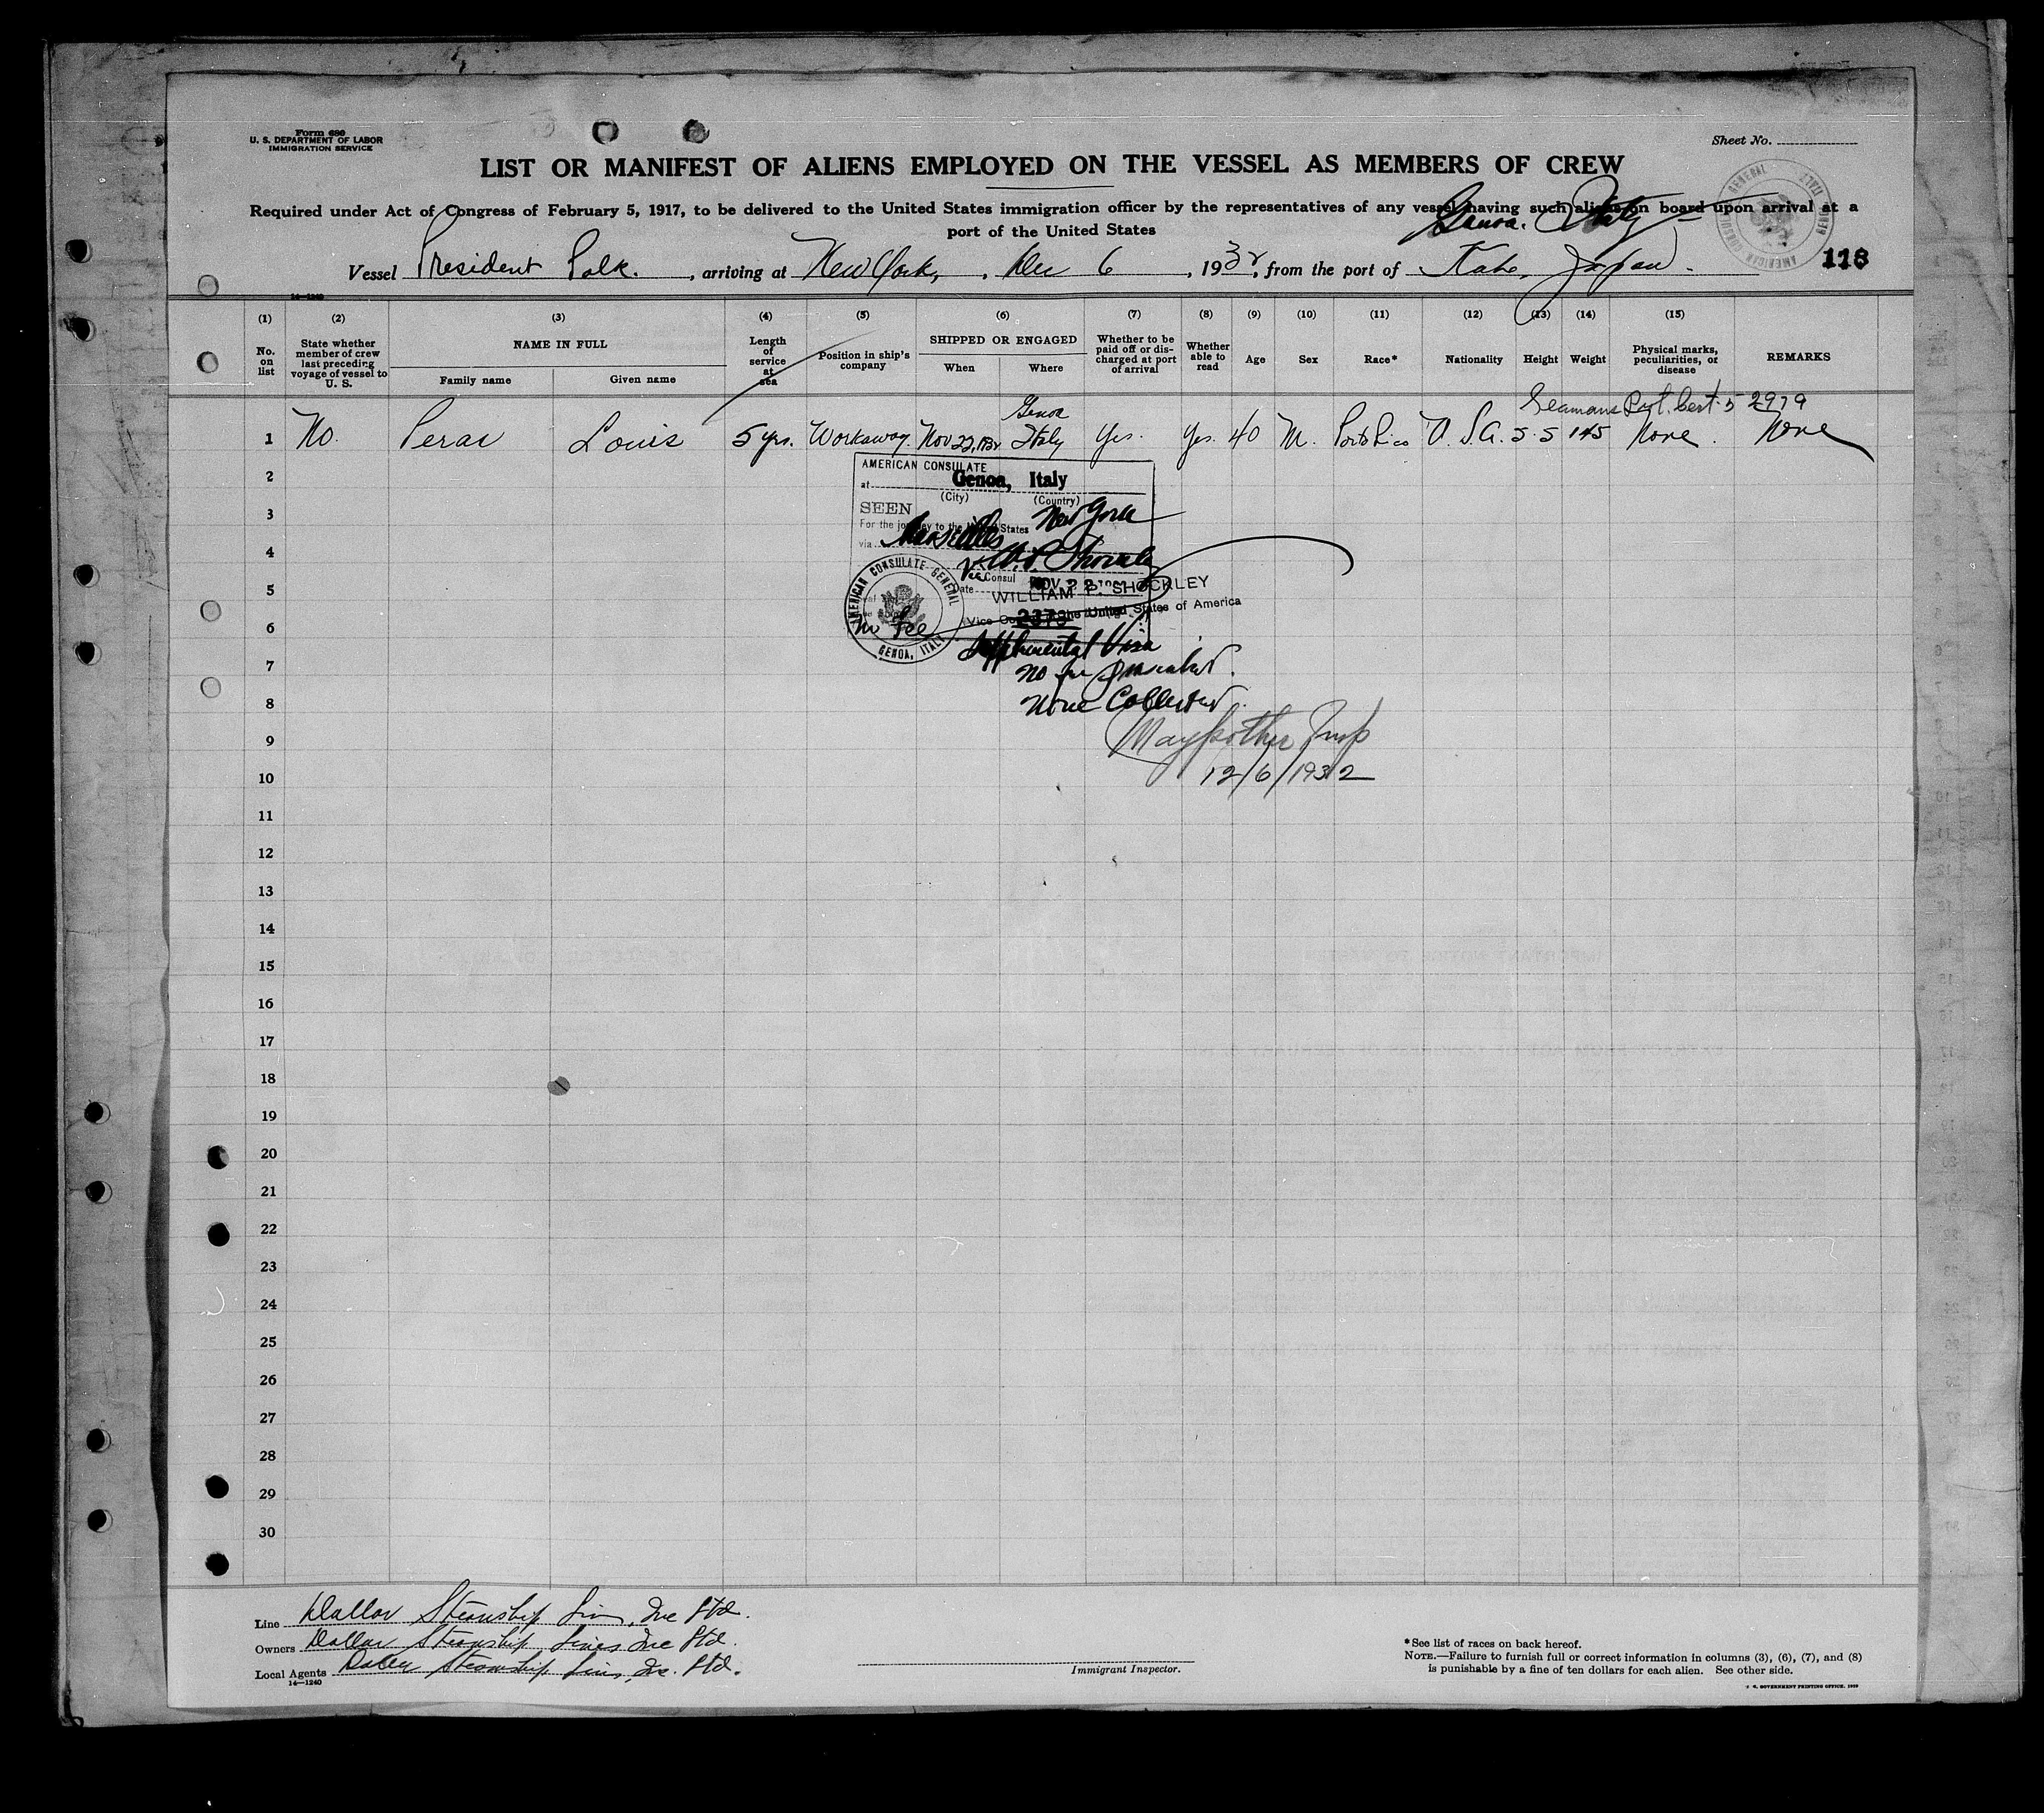 Form 680
U. S. DEPARTMENT OF LABOR
IMMIGRATION SERVICE
Sheet No.
LIST OR MANIFEST OF ALIENS EMPLOYED ON THE VESSEL AS MEMBERS OF CREW
Required under Act of Congress of February 5, 1917, to be delivered to the United States immigration officer by the representatives of any vessel having such aliens on board upon arrival at a
port of the United States
Genoa. Italy
Vessel President Polk. , arriving at New York, , Dec 6 , 1932, from the port of Kobe, Japan.
118
14—1240
(1) (2) (3) (4) (5) (6) (7) (8) (9) (10) (11) (12) (13) (14) (15)
No. on list
State whether member of crew last preceding voyage of vessel to U. S.
NAME IN FULL
Family name
Given name
Length of service at sea
Position in ship's company
SHIPPED OR ENGAGED
When
Where
Whether to be paid off or discharged at port of arrival
Whether able to read
Age
Sex
Race*
Nationality
Height
Weight
Physical marks, peculiarities, or disease
REMARKS
Seamans Prot. Cert. 52979
1 No. Peras Louis 5 yrs. Workaway. Nov 22, 1932 Genoa Italy Yes. Yes. 40 M. Porto Rico U.S.A. 5.5 145 None. None
2
3
4
5
6
7
8
9
10
11
12
13
14
15
16
17
18
19
20
21
22
23
24
25
26
27
28
29
30
AMERICAN CONSULATE
at Genoa, Italy
(City) (Country)
SEEN
For the journey to the United States New York
via Marseilles
Vice Consul
Date NOV 22
WILLIAM P. SHOCKLEY
Vice Consul of the United States of America
2373
AMERICAN CONSULATE GENERAL
GENOA, ITALY
No Fee
Supplemental Visa
No fee prescribed.
None Collected.
Insp
12/6/1932
Line Dollar Steamship Line, Inc Ltd.
Owners Dollar Steamship Lines Inc Ltd.
Local Agents Dollar Steamship Lines, Inc. Ltd.
14—1240
Immigrant Inspector.
*See list of races on back hereof.
NOTE.—Failure to furnish full or correct information in columns (3), (6), (7), and (8)
is punishable by a fine of ten dollars for each alien. See other side.
U. S. GOVERNMENT PRINTING OFFICE: 1929